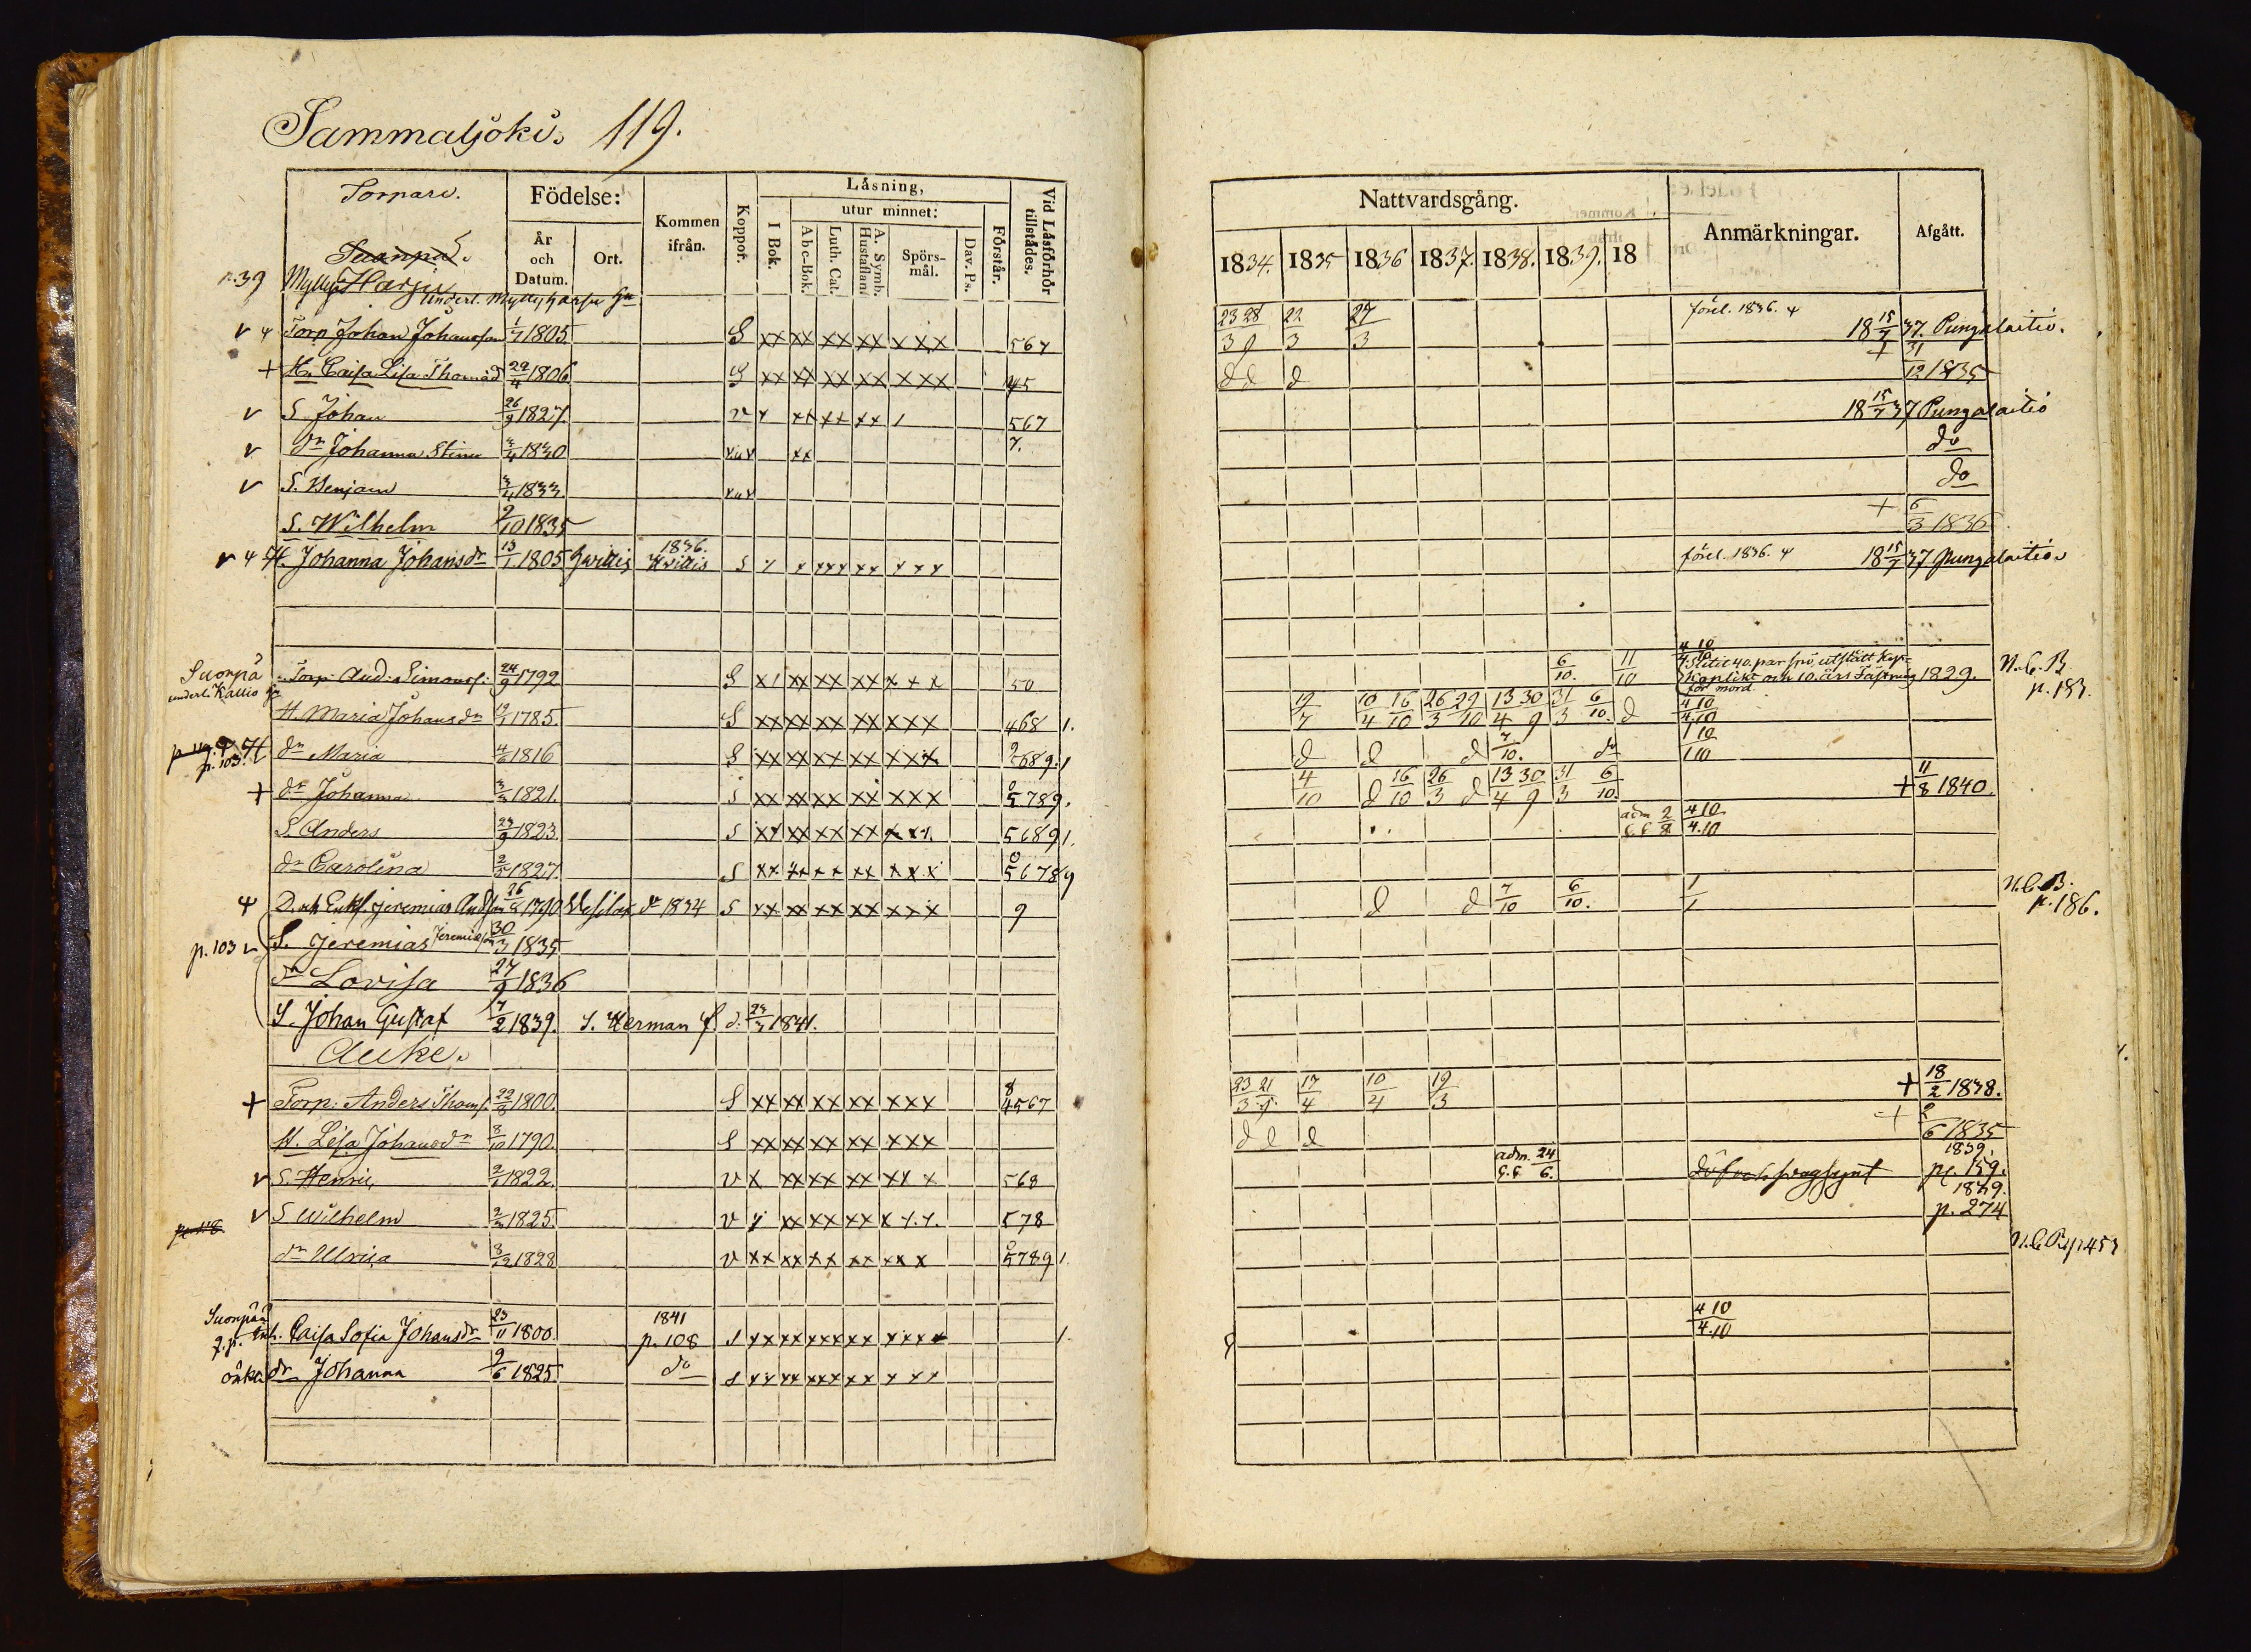 Sammaljoki. 119.
Torpare.
Födelse:
År och Datum.
Ort.
Kommen ifrån.
Koppor.
Läsning,
I Bok.
utur minnet:
Abc-Bok.
Luth. Cat.
A. Symb. Hustaflan
Spörs-mål.
Dav. Ps.
Förstår.
Vid Läsförhör tillstädes.
Suonpä.
p.39 Mylly Harju
underl. Myllyharju Hn
v ψ Torp. Johan Johansson 1/7 1805 S xx xx xx xx x xx 567
+ H. Caisa Lisa Thomasd 29/4 1806 S xx xx xx xx xxx 45
v S. Johan 26/9 1827. v x xx xx xx 1 567
v dr Johanna Stina 3/4 1830 v.u.v xx 7.
v S. Benjam 3/4 1833. v.u.v
S. Wilhelm 9/10 1835
v ψ H. Johanna Johansdr 13/1 1805 Hvittis 1836. Hvittis S x x xxx xx x xx
Suonpä underl. Kallio Hn Torp. And: Simonss: 24/9 1792 S x1 xx xx xx x x x 50
H. Maria Johansdr 19/1 1785. S xx xx xx xx xxx 468 1.
p. 103. dr Maria 4/6 1816 S xx xx xx xx xxx 689. 1
+ dr Johanna 3/3 1821. S xx xx xx xx xxx 5789.
S. Anders 23/9 1823. S xx xx xx xx x xx. 5689 1.
dr Carolina 2/5 1827. S xx xx xx xx xxx 56789
ψ Enkl. Jeremias Andsson 26/5 1790 Vesilax dr 1834 S xx xx xx xx xxx 9
p.103 v S. Jeremias Jeremiasson 30/3 1835
dr Lovisa 27/9 1836
S. Johan Gustaf 7/2 1839. S. Herman f. d. 23/3 1841.
Auke.
+ Torp. Anders Thoms. 22/8 1800. S xx xx xx xx xxx 4567
H. Lisa Johansdr 8/10 1790. S xx xx xx xx xxx
v S. Henric 2/1 1822. v x xx xx xx xx x 568
p. 118. v S. Wilhelm 2/3 1825. v x xx xx xx x x.x. 578
dr Ulrica 8/12 1828 v xx xx xx xx xx x 5789 1.
Suonpää Enk. Caisa Sofia Johansdr 23/11 1800. 1841 p. 108 S xx xx xxx xx xxx x 1.
dr Johanna 9/6 1825. do S xx xx xxx xx x xx
Nattvardsgång.
Anmärkningar.
Afgått.
1834. 1835 1836 1837. 1838. 1839. 18
23 28 22 27 förel. 1836. ψ 18 15/7 37. Pungalaitio.
3 9 3 3 + 31
d d d 12 1835
18 15/7 37 Pungalaitio
do
do
+ 6/3 1836
förel. 1836. ψ 18 15/7 37 Pungalaitio
4 10
6/10. 11/10 Slitit 40. par spö, utstått kyr-
koplikt och 10. års Fästning 1829. N.C.B. p. 183.
för mord.
19/7 10/4 16/10 26/3 29/10 13/4 30/9 31/3 6/10. d 4 10
4.10
d d d 7/10. do 1 10
1 10
4/10 d 16/10 26/3 d 13/4 30/9 31/3 6/10. + 11/8 1840.
adm. 2/8 4 10
4.10
d d 7/10 6/10. 1/1 N.C.B. p. 186.
23/3 21 17/4 10/4 19/3 + 18/2 1838.
d d d + 2/6 1835
adm. 24/6. 1839. p. 159.
1839. p. 274
N.C.B. p 453
4 10
4.10